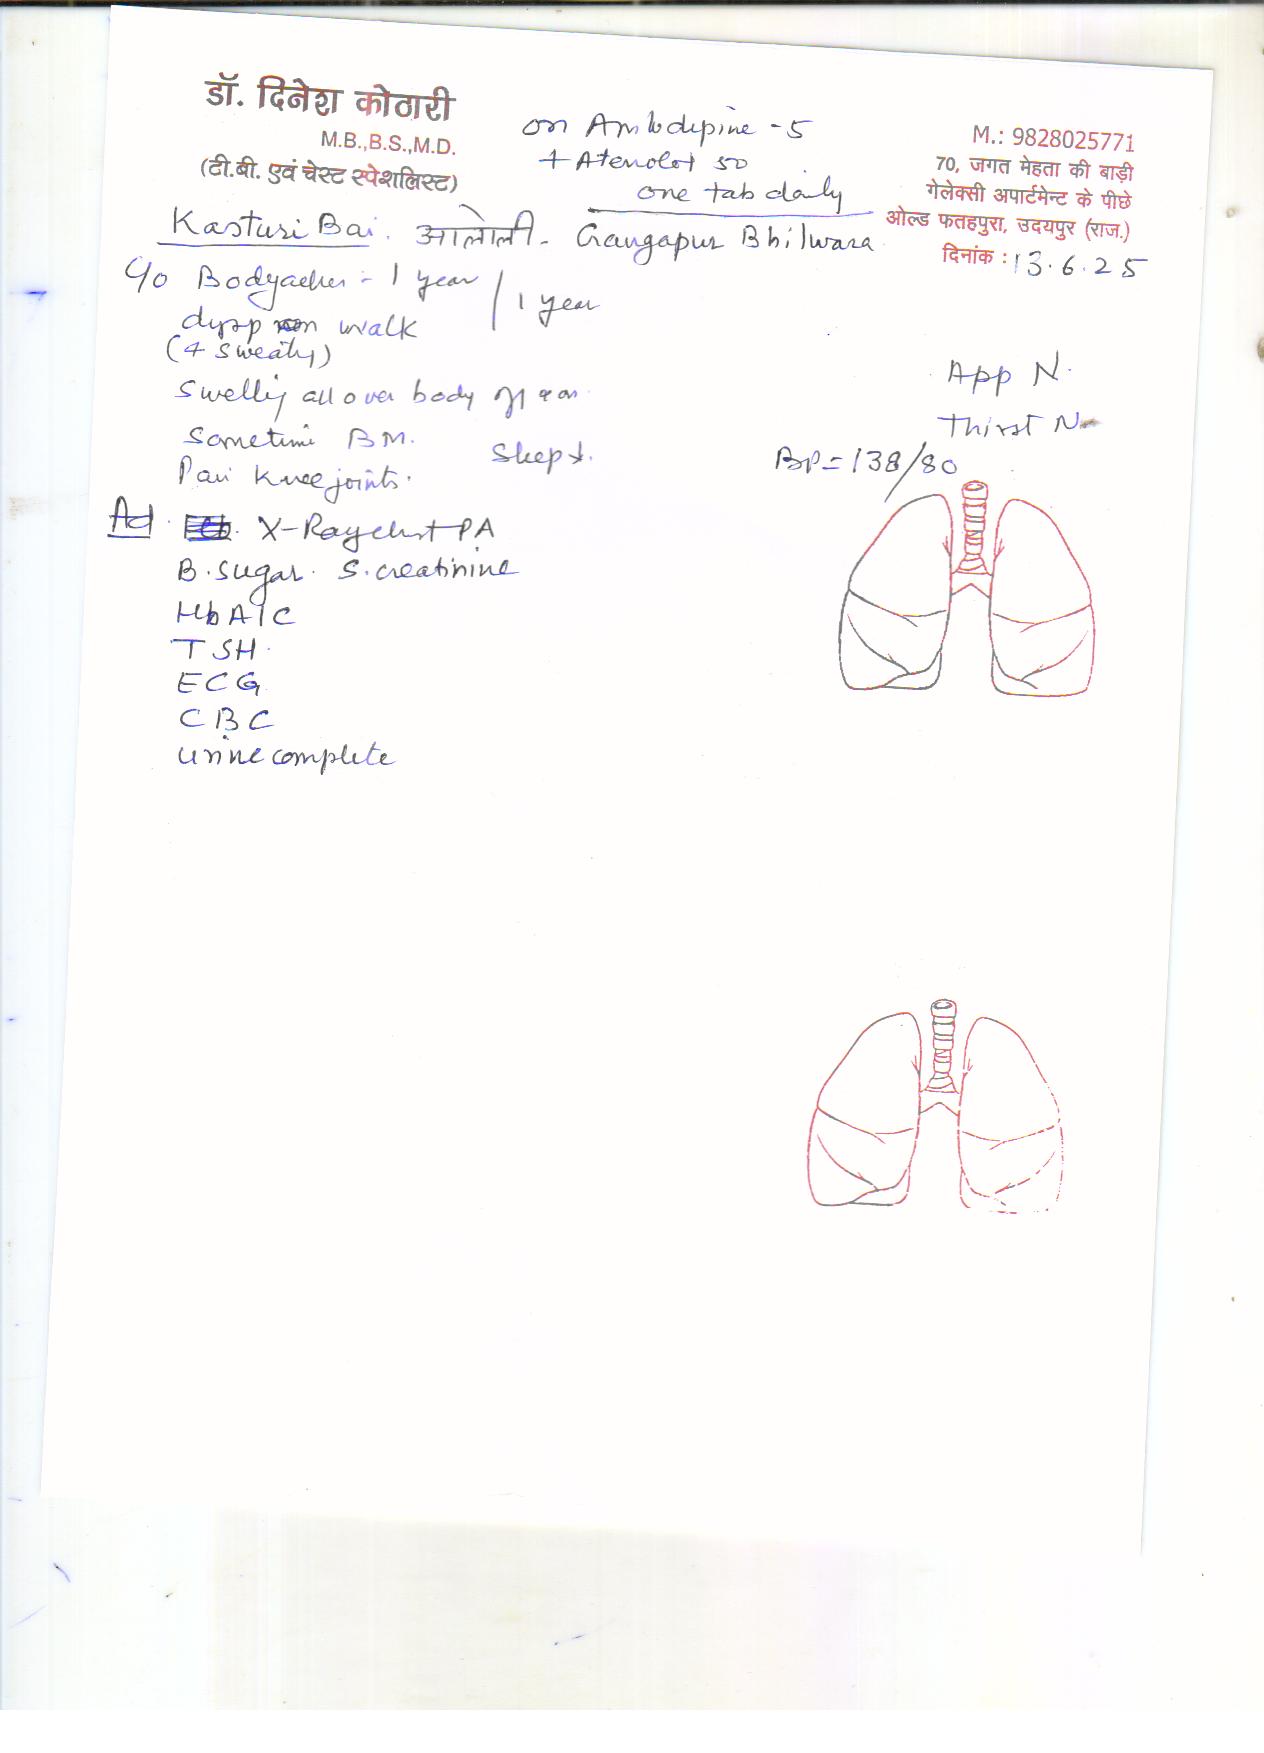 डॉ. दिनेश कोठारी
M.B.,B.S.,M.D.
(टी.बी. एवं चेस्ट स्पेशलिस्ट)
on Amlodipine - 5
+ Atenolol 50
one tab daily
M.: 9828025771
70, जगत मेहता की बाड़ी
गेलेक्सी अपार्टमेन्ट के पीछे
ओल्ड फतहपुरा, उदयपुर (राज.)
दिनांक : 13.6.25
Kasturi Bai. आलोली - Gangapur Bhilwara
C/o Bodyaches - 1 year / 1 year
dysp on walk
(+ Sweaty)
Swelling all over body
Sometime BM. Sleep ↓.
Pain Knee joints.
App N.
Thirst N
BP = 138/80
Ad. X-Ray chest PA
B. Sugar. S. creatinine
HbA1C
TSH.
ECG
CBC
Urine complete